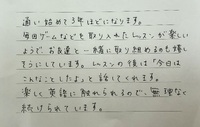 通い始めて3年ほどになります。
毎回ゲームなどを取り入れたレッスンが楽しい
ようで、お友達と一緒に取り組めるのも嬉し
そうにしています。レッスンの後は「今日は
こんなことしたよ」と話してくれます。
楽しく英語に触れられるので、無理なく
続けられています。